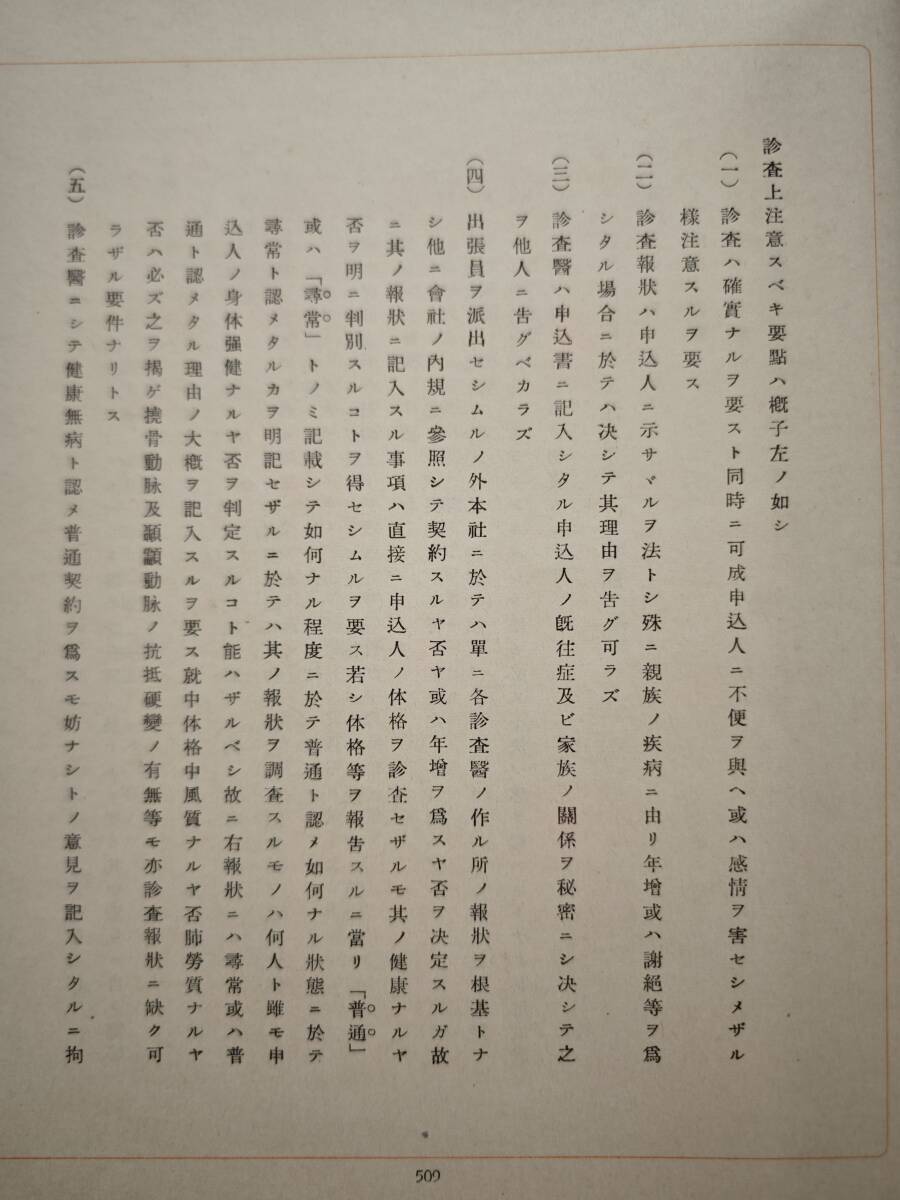 診査上注意スベキ要點ハ概子左ノ如シ
(一) 診査ハ確實ナルヲ要スト同時ニ可成申込人ニ不便ヲ與ヘ或ハ感情ヲ害セシメザル
樣注意スルヲ要ス
(二) 診査報狀ハ申込人ニ示サヾルヲ法トシ殊ニ親族ノ疾病ニ由リ年增或ハ謝絕等ヲ爲
シタル場合ニ於テハ决シテ其理由ヲ告グ可ラズ
(三) 診査醫ハ申込書ニ記入シタル申込人ノ既往症及ビ家族ノ關係ヲ秘密ニシ决シテ之
ヲ他人ニ告グベカラズ
(四) 出張員ヲ派出セシムルノ外本社ニ於テハ單ニ各診査醫ノ作ル所ノ報狀ヲ根基トナ
シ他ニ會社ノ內規ニ參照シテ契約スルヤ否ヤ或ハ年增ヲ爲スヤ否ヲ决定スルガ故
ニ其ノ報狀ニ記入スル事項ハ直接ニ申込人ノ体格ヲ診査セザルモ其ノ健康ナルヤ
否ヲ明ニ判別スルコトヲ得セシムルヲ要ス若シ休格等ヲ報吿スルニ當リ「普通」
或ハ「尋常」トノミ記載シテ如何ナル程度ニ於テ普通ト認メ如何ナル狀態ニ於テ
尋常ト認メタルカヲ明記セザルニ於テハ其ノ報狀ヲ調査スルモノハ何人ト雖モ申
込人ノ身体强健ナルヤ否ヲ判定スルコト能ハザルベシ故ニ右報狀ニハ尋常或ハ普
通ト認メタル理由ノ大槪ヲ記入スルヲ要ス就中体格中風質ナルヤ否肺勞質ナルヤ
否ハ必ズ之ヲ揭ゲ撓骨動脉及顳顬動脉ノ抗抵硬變ノ有無等モ亦診査報狀ニ缺ク可
ラザル要件ナリトス
(五) 診査醫ニシテ健康無病ト認メ普通契約ヲ爲スモ妨ナシトノ意見ヲ記入シタルニ拘
509